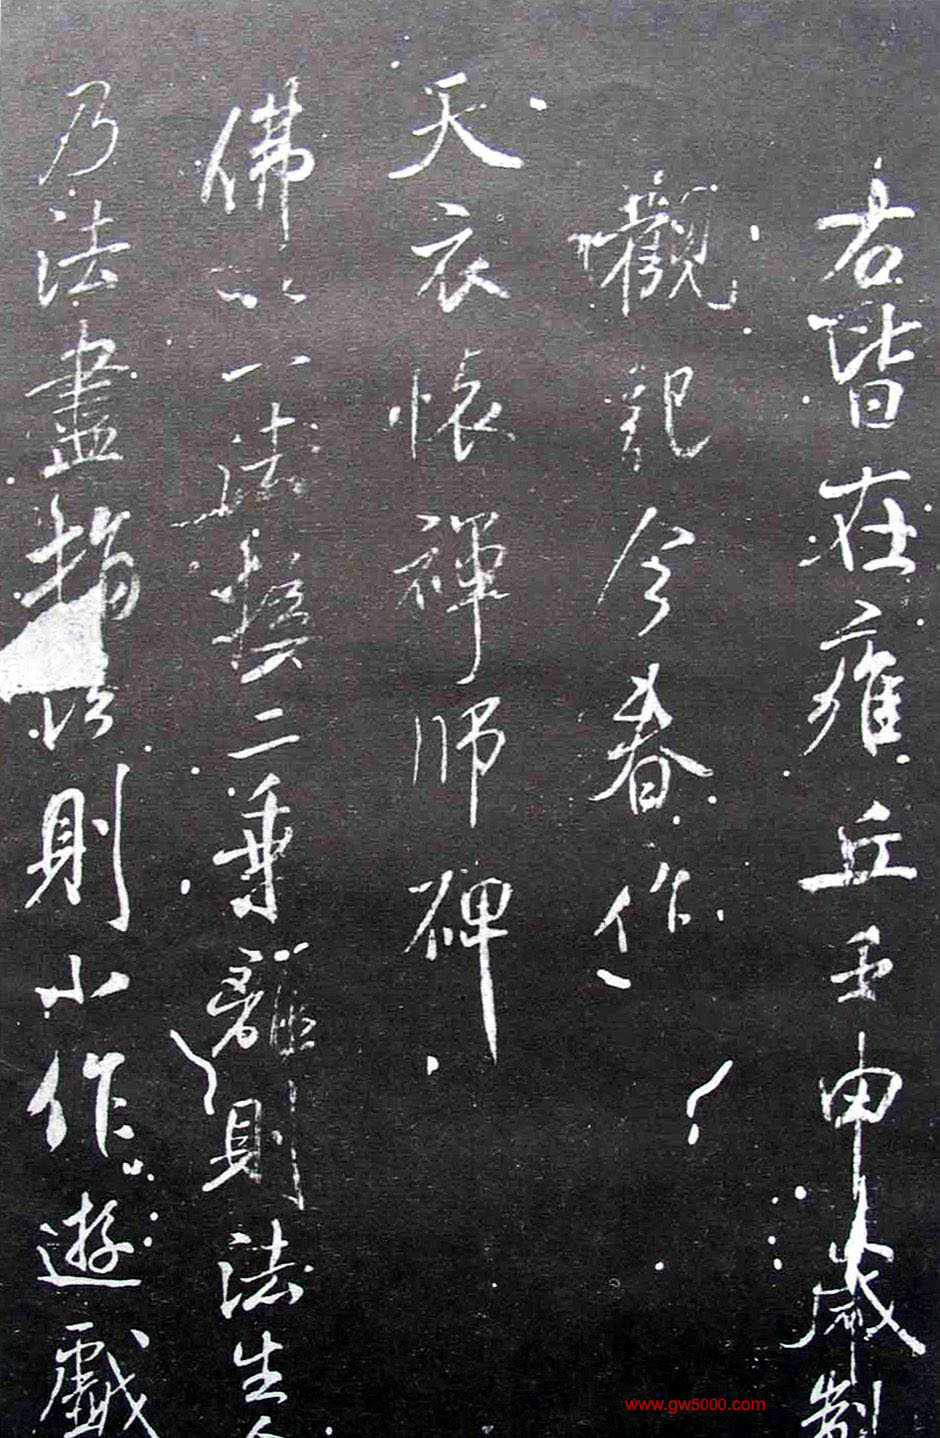 右皆在雍丘壬申歲製
觀記今春作
天衣懷禪師碑
佛以一法攝二乘離則法生
乃法盡指以則小作遊戲
www.gw5000.com